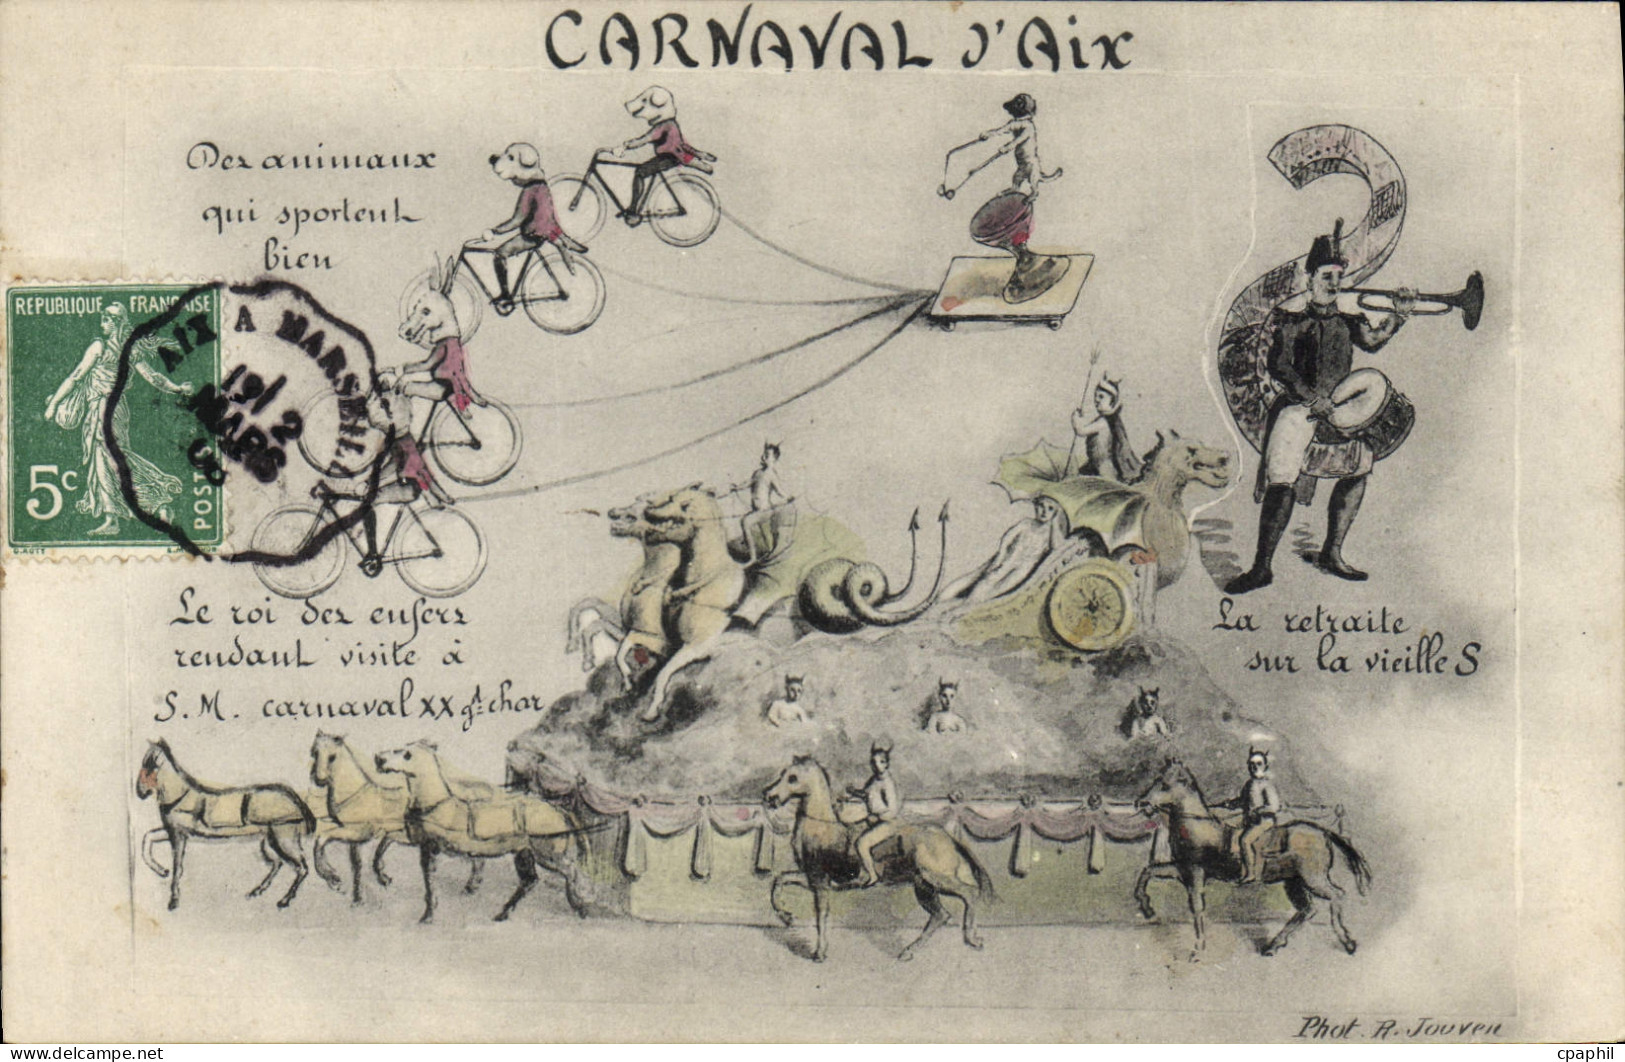 CARNAVAL D'AiX
Des animaux
qui sportent
bien
REPUBLIQUE FRANÇAISE
5c
POSTES
AIX A MARSEILLE
19/2
MARS
08
Le roi des enfers
rendant visite à
S. M. carnaval XX gd char
La retraite
sur la vieille S
Phot. R. Jouven
cpaphil